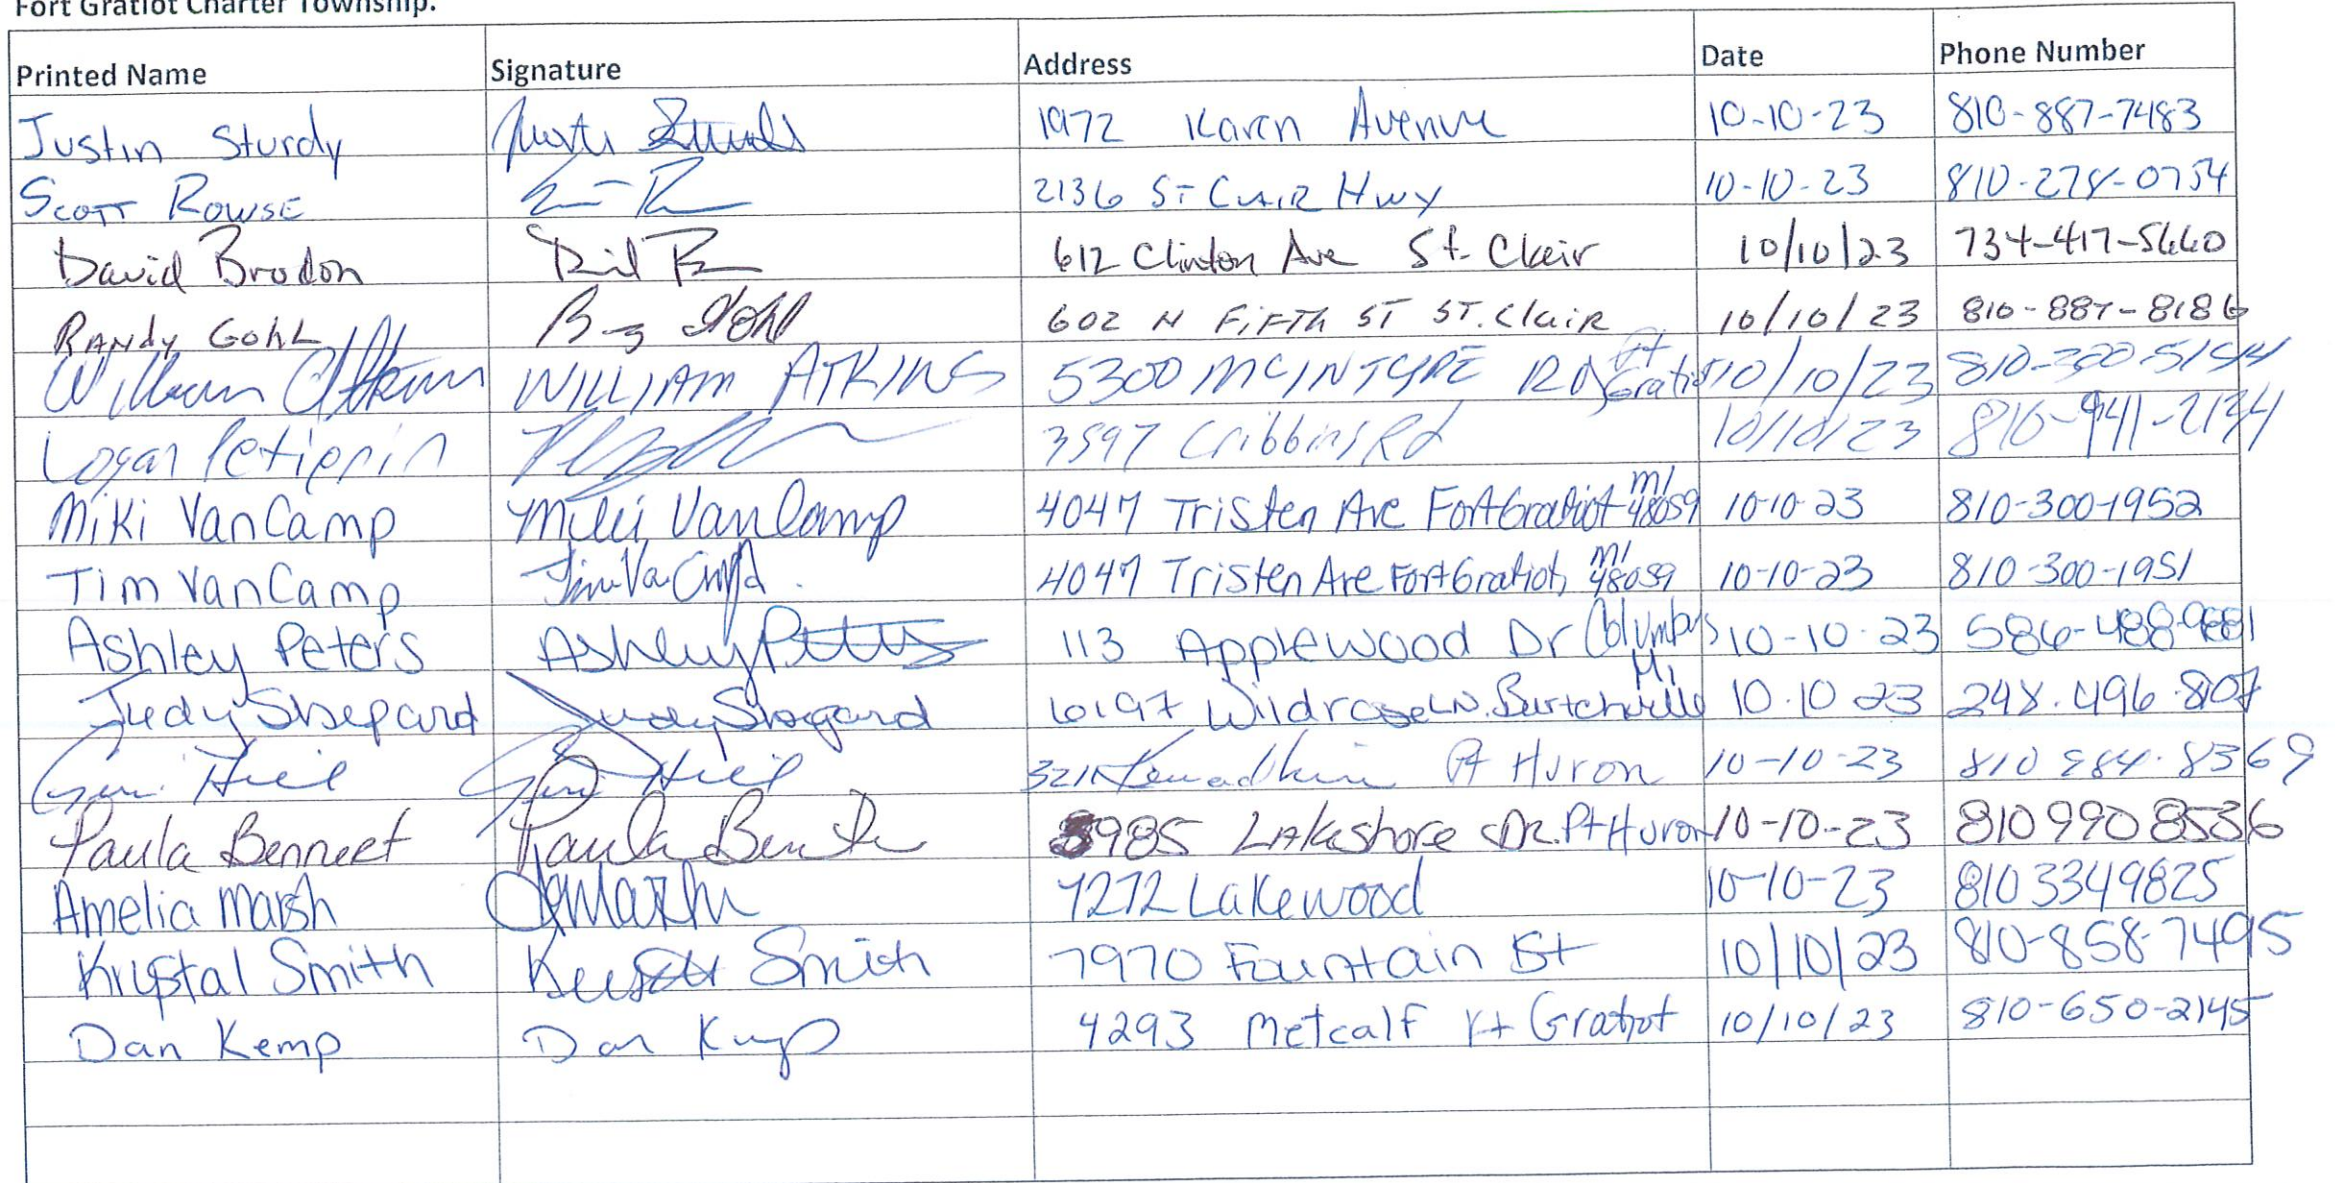 Fort Gratiot Charter Township.
Printed Name Signature Address Date Phone Number
Justin Sturdy 1972 Karen Avenue 10-10-23 810-887-7483
Scott Rowse 2136 St Clair Hwy 10-10-23 810-278-0754
David Brodon 612 Clinton Ave St. Clair 10/10/23 734-417-5660
Randy Gohl Gohl 602 N Fifth St St. Clair 10/10/23 810-887-8186
William Atkins WILLIAM ATKINS 5300 McIntyre Rd Ft Gratiot 10/10/23
Logan Petiprin 3597 Cribbins Rd 10/10/23 810-941-2134
Miki VanCamp Miki VanCamp 4047 Tristen Ave Fort Gratiot MI 48059 10-10-23 810-300-1952
Tim VanCamp 4047 Tristen Ave Fort Gratiot, MI 48059 10-10-23 810-300-1951
Ashley Peters Ashley Peters 113 Applewood Dr Columbus MI 10-10-23
Judy Shepard Judy Shepard 6197 Wildrose LN. Burtchville 10.10 23 248.496.8107
Hiel Hiel Pt Huron 10-10-23 810 984-8369
Paula Bennett Paula 3985 Lakeshore DR. Pt Huron 10-10-23 810 990 8536
Amelia Marsh 7272 Lakewood 10-10-23 810 3349825
Krystal Smith Smith 7970 Fountain St 10/10/23 810-858-7495
Dan Kemp Dan Kemp 4293 Metcalf Ft Gratiot 10/10/23 810-650-2145